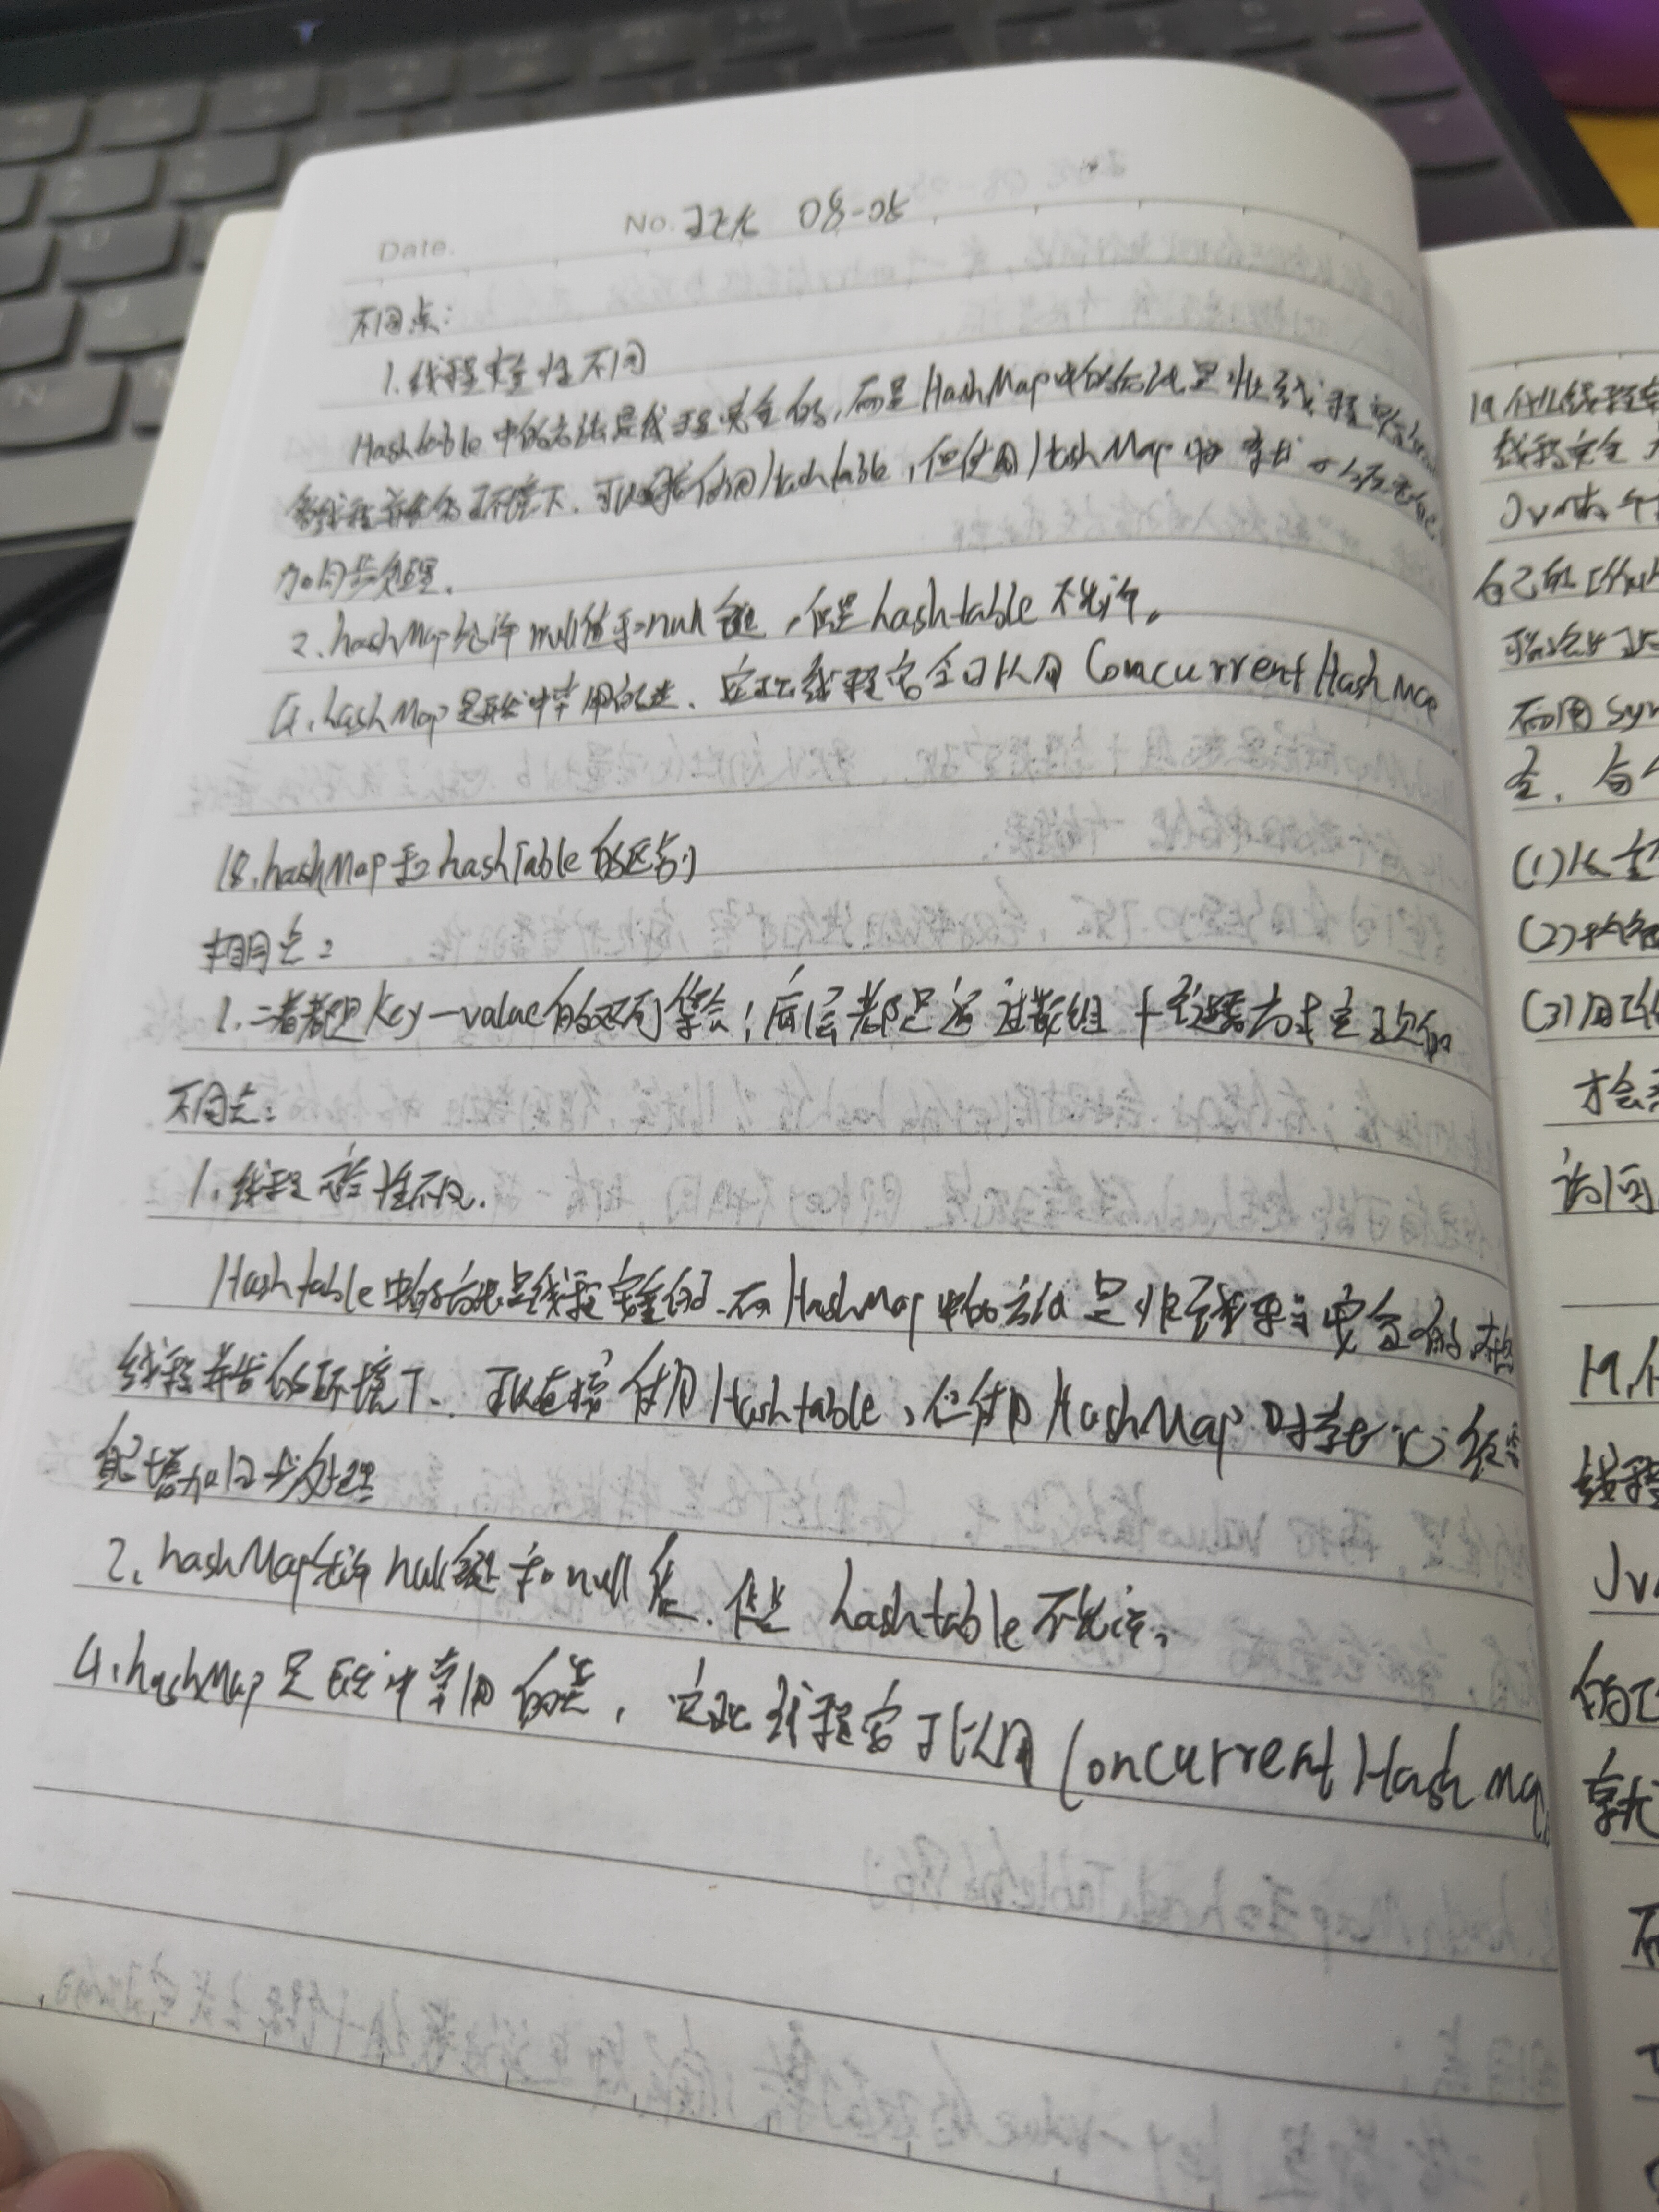 Date.
No. 08-08
不同点：
1.线程安全性不同
Hashtable中的方法是线程安全的，而是HashMap中的方法是非线程安全
多线程并发的环境下、可以直接使用Hashtable，但使用HashMap时
加同步处理.
2.hashMap允许null值和null键，但是hashtable不允许。
4.hashMap是 中常用的类、 线程安全可以用ConcurrentHashMap
18.hashMap和hashTable的区别
相同点：
1.二者都是key-value的双列集合；底层都是通过数组+链表方式实现的
不同点：
1.线程安全性不同.
Hashtable中的方法是线程安全的、而HashMap中的方法是非线程安全的、
线程并发的环境下、可以直接使用Hashtable，但使用HashMap时
增加同步处理
2.hashMap允许null键和null值、但是hashtable不允许，
4.hashMap是 中常用的类， 线程 可以用ConcurrentHashMap
线程安全
JVM
自己的
而用syn
(1)
(2)
(3)用
才会
访问
19.什
线程
JVM
的工
就
不